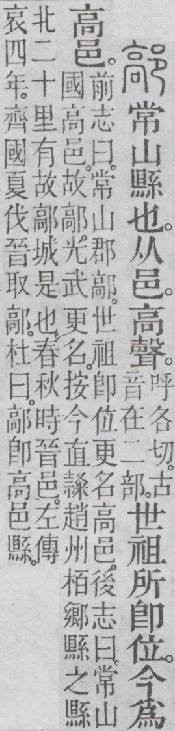 鄗 常山縣也。从邑。高聲。呼各切。古
音在二部。世祖所卽位。今爲
高邑。前志曰。常山郡鄗。世祖卽位。更名高邑。後志曰。常山
國高邑。故鄗。光武更名。按今直隷趙州栢鄉縣之縣
北二十里有故鄗城是也。春秋時晉邑。左傳
哀四年。齊國夏伐晉取鄗。杜曰。鄗卽高邑縣。